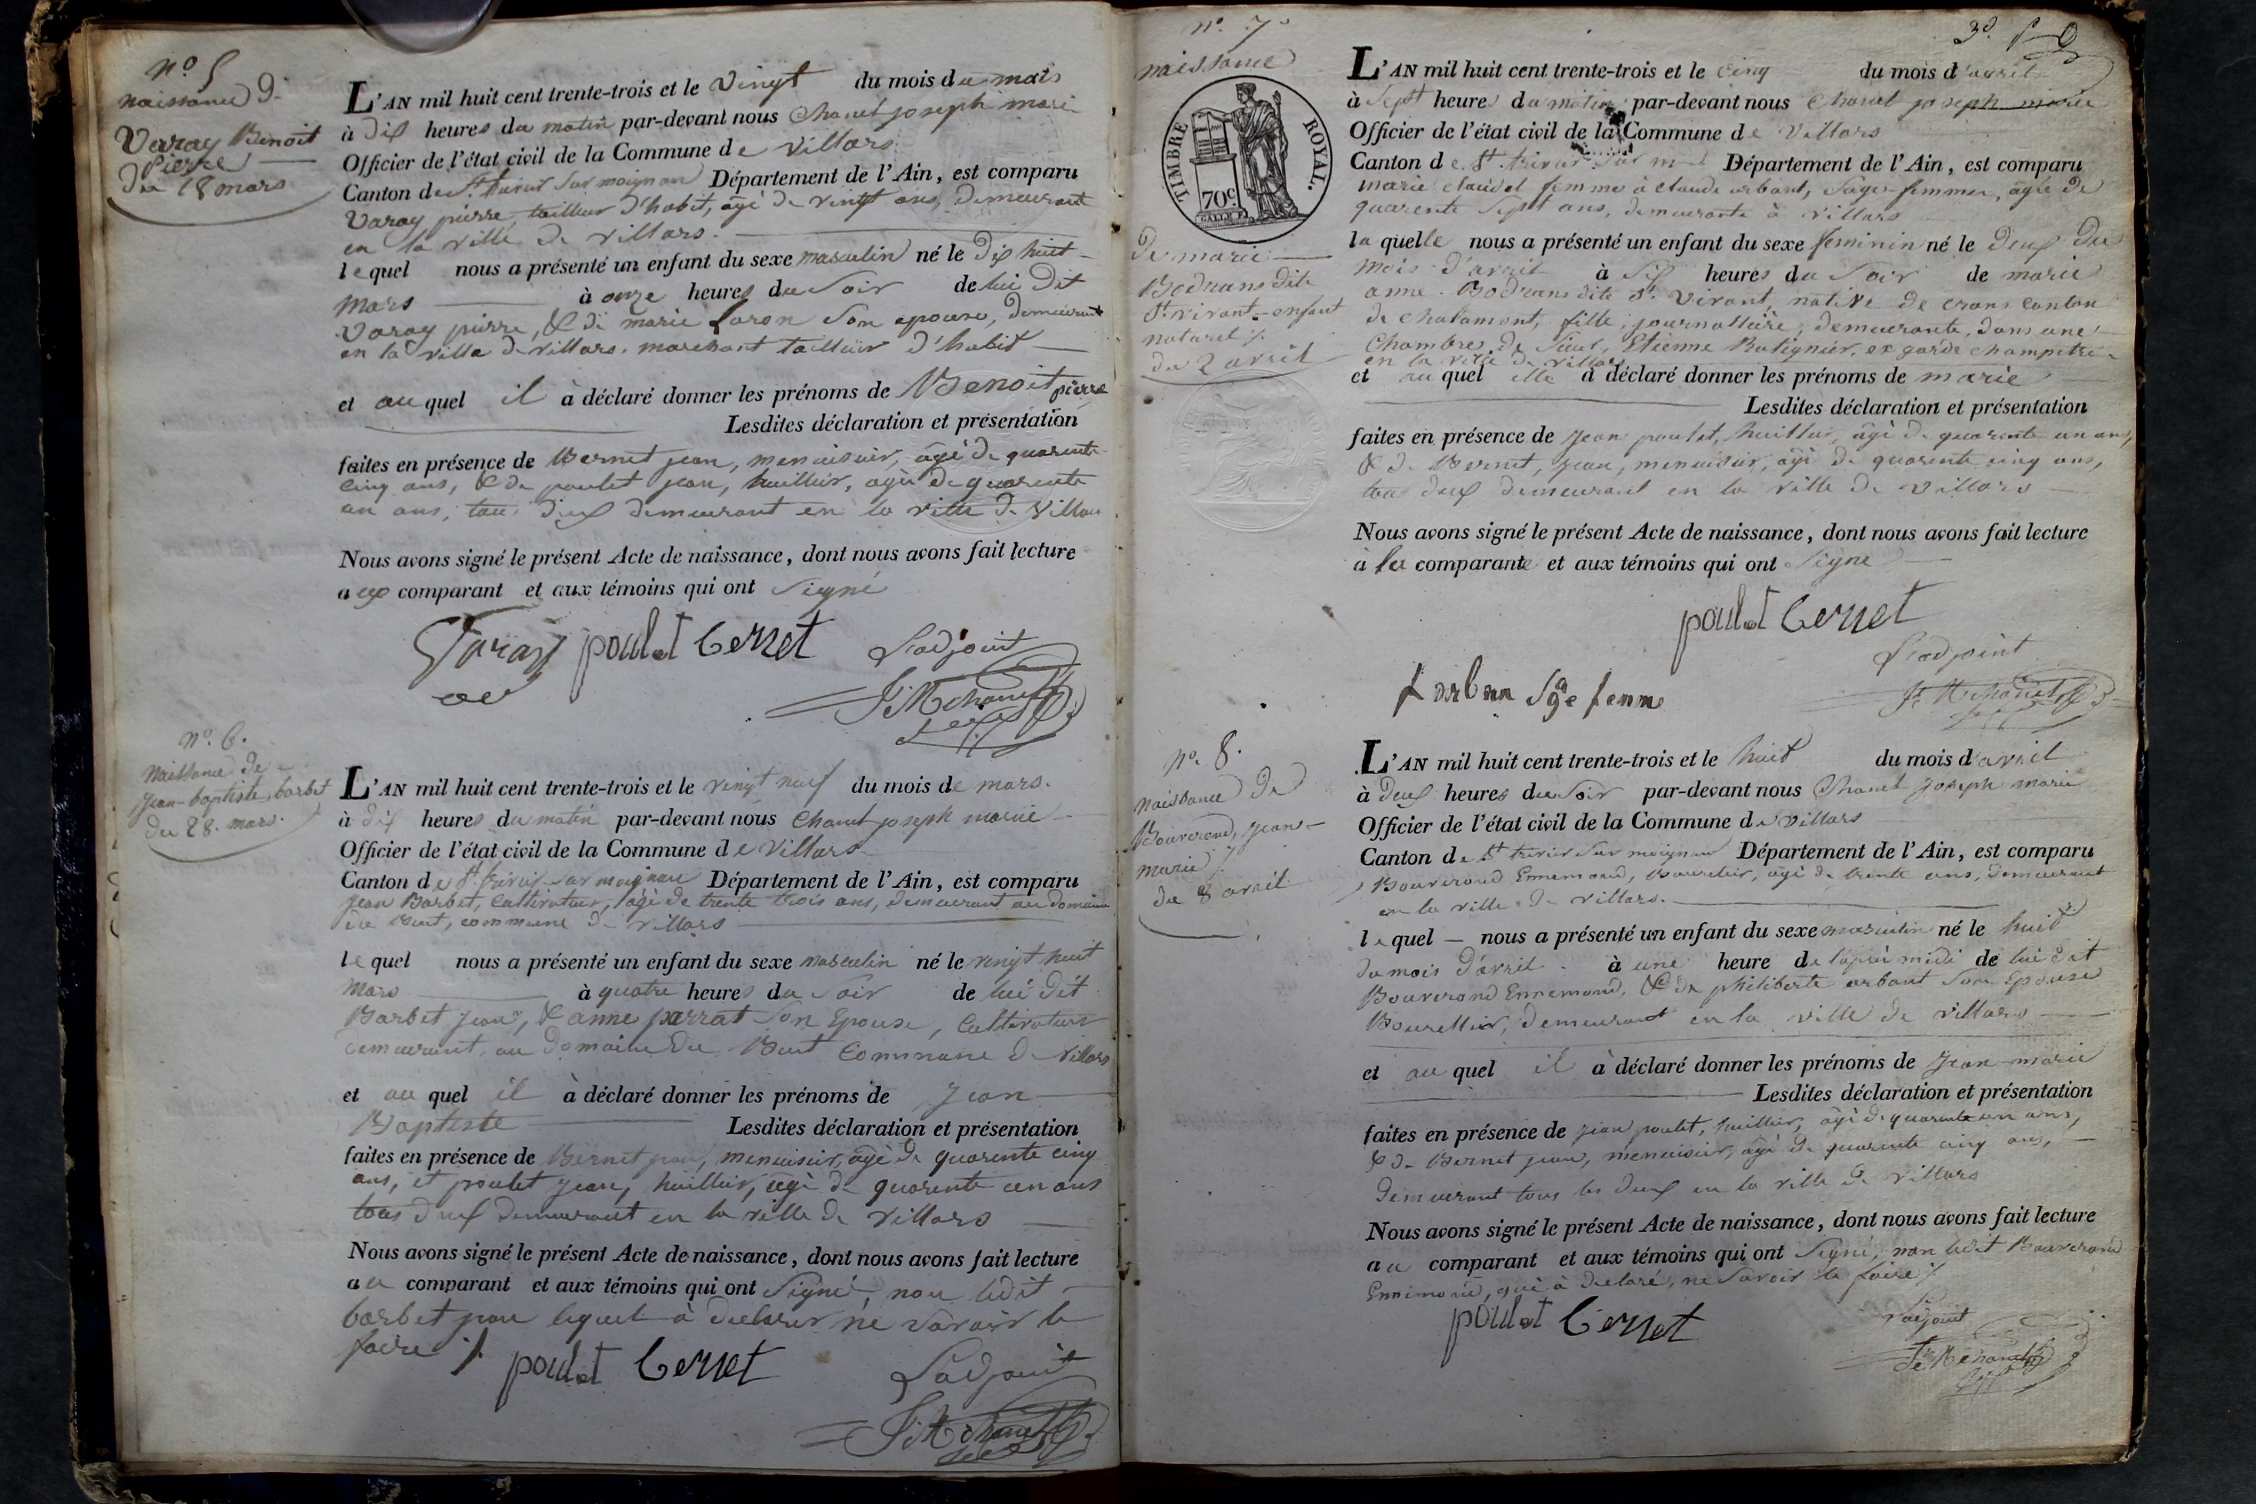 nº 5
naissance d.
Varay Benoit
Pierre
du 18 mars
L'AN mil huit cent trente-trois et le vingt du mois du mars
à dix heures du matin par-devant nous Chanet joseph marie
Officier de l'état civil de la Commune de Villars
Canton de St trivier sur moignan Département de l'Ain, est comparu
Varay pierre tailleur d'habit, âgé de vingt ans, demeurant
en la ville de villars.
lequel nous a présenté un enfant du sexe masculin né le dix huit
mars à onze heures du soir de lui dit
Varay pierre, & de marie son epouse, demeurant
en la ville de villars. marchant tailleur d'habit
et au quel il à déclaré donner les prénoms de Benoit pierre
Lesdites déclaration et présentation
faites en présence de Bernet jean, menuisier, âgé de quarente
cinq ans, & de poulet jean, huillier, agé de quarente
un ans, tous deux demeurant en la ville de Villars
Nous avons signé le présent Acte de naissance, dont nous avons fait lecture
aux comparant et aux témoins qui ont signé
Varay poulet bernet L'adjoint
J. M. Chanet
nº 6.
Naissance de
Jean-baptiste barbet
du 28. mars.
L'AN mil huit cent trente-trois et le vingt neuf du mois de mars.
à dix heures du matin par-devant nous Chanet joseph marie
Officier de l'état civil de la Commune de Villars
Canton de St trivier sur moignan Département de l'Ain, est comparu
Jean Barbet, Cultivateur, âgé de trente trois ans, demeurant au domaine
du Buet, commune de villars
lequel nous a présenté un enfant du sexe masculin né le vingt huit
mars à quatre heures du soir de lui dit
Barbet Jean, & anne parrat son Epouse, Cultivateurs
demeurant au domaine du Buet Commune de Villars
et au quel il à déclaré donner les prénoms de Jean
Baptiste Lesdites déclaration et présentation
faites en présence de Bernet jean, menuisier, âgé de quarente cinq
ans, et poulet jean, huillier, agé de quarente un ans
tous deux demeurant en la ville de Villars
Nous avons signé le présent Acte de naissance, dont nous avons fait lecture
au comparant et aux témoins qui ont signé non ledit
barbet jean lequel à declarer ne savoir le
faire ./.
poulet bernet L'adjoint
J. M. Chanet
nº 7
3e.
naissance
TIMBRE ROYAL.
70c.
de marie
Bodrans dite
St vivant enfant
naturel ./.
du 2 avril
L'AN mil huit cent trente-trois et le cinq du mois d'avril
à sept heures du matin par-devant nous Chanet joseph marie
Officier de l'état civil de la Commune de Villars
Canton de St trivier sur m Département de l'Ain, est comparu
marie claudel femme à claude arbant, sage-femme, âgée de
quarente sept ans, demeurante à villars
la quelle nous a présenté un enfant du sexe feminin né le deux du
mois d'avril à six heures du soir de marie
anne Bodrans dite St Vivant, native de crans canton
de chalamont, fille, journalière, demeurante, dans une
Chambre de sieur, Etienne Batignier, ex garde champetre
en la ville de villars
et au quel elle à déclaré donner les prénoms de marie
Lesdites déclaration et présentation
faites en présence de jean poulet, huillier, âgé de quarente un ans,
& de Bernet, jean, menuisier, âgé de quarente cinq ans,
tous deux demeurant en la ville de Villars
Nous avons signé le présent Acte de naissance, dont nous avons fait lecture
à la comparante et aux témoins qui ont signé
poulet bernet
L'adjoint
f arban sge femme J. M. Chanet
nº 8.
naissance de
Bouverond, Jean-
marie ./.
du 8 avril
L'AN mil huit cent trente-trois et le huit du mois d'avril
à deux heures du soir par-devant nous Chanet joseph marie
Officier de l'état civil de la Commune de Villars
Canton de St trivier sur moignan Département de l'Ain, est comparu
Bouverond Ennemond, bourelier, âgé de trente ans, demeurant
en la ville de villars.
lequel nous a présenté un enfant du sexe masculin né le huit
du mois d'avril à une heure de l'après midi de lui dit
Bouverond Ennemond, & de philiberte arbant son Epouse
Bourellier, demeurant en la ville de villars
et au quel il à déclaré donner les prénoms de Jean marie
Lesdites déclaration et présentation
faites en présence de jean poulet, huillier, âgé de quarente un ans,
& de Bernet jean, menuisier, âgé de quarente cinq ans,
demeurant tous les deux en la ville de villars
Nous avons signé le présent Acte de naissance, dont nous avons fait lecture
au comparant et aux témoins qui ont signé, non ledit Bouverond
Ennemond, qui à declaré, ne savoir le faire ./.
poulet bernet L'adjoint
J. M. Chanet